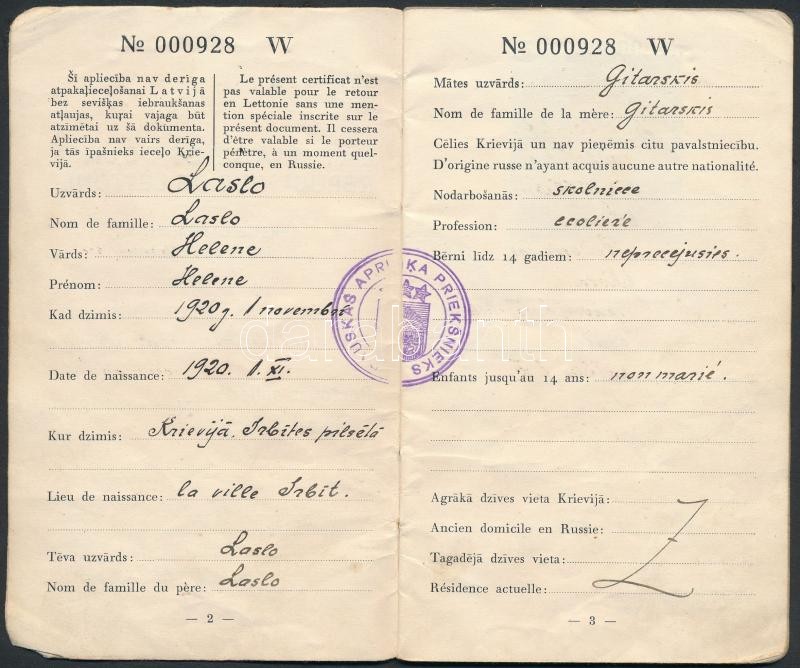 № 000928 W
Šī apliecība nav derīga
atpakaļieceļošanai Latvijā
bez sevišķas iebraukšanas
atļaujas, kuŗai vajaga būt
atzīmētai uz šā dokumenta.
Apliecība nav vairs derīga,
ja tās īpašnieks ieceļo Krie-
vijā.
Le présent certificat n'est
pas valable pour le retour
en Lettonie sans une men-
tion spéciale inscrite sur le
présent document. Il cessera
d'être valable si le porteur
pénètre, à un moment quel-
conque, en Russie.
Uzvārds: Laslo
Nom de famille: Laslo
Vārds: Helene
Prénom: Helene
Kad dzimis: 1920 g. 1 novembrī
Date de naissance: 1920. 1. XI.
Kur dzimis: Krievijā, Irbītes pilsētā
Lieu de naissance: la ville Irbit.
Tēva uzvārds: Laslo
Nom de famille du père: Laslo
— 2 —
№ 000928 W
Mātes uzvārds: Gitarskis
Nom de famille de la mère: Gitarskis
Cēlies Krievijā un nav pieņēmis citu pavalstniecību.
D'origine russe n'ayant acquis aucune autre nationalité.
Nodarbošanās: skolniece
Profession: ecolière
Bērni līdz 14 gadiem: neprecejusies.
Enfants jusqu'au 14 ans: non marié.
Agrākā dzīves vieta Krievijā:
Ancien domicile en Russie:
Tagadējā dzīves vieta:
Résidence actuelle:
— 3 —
USKAS APRIŅĶA PRIEKŠNIEKS
darabanth